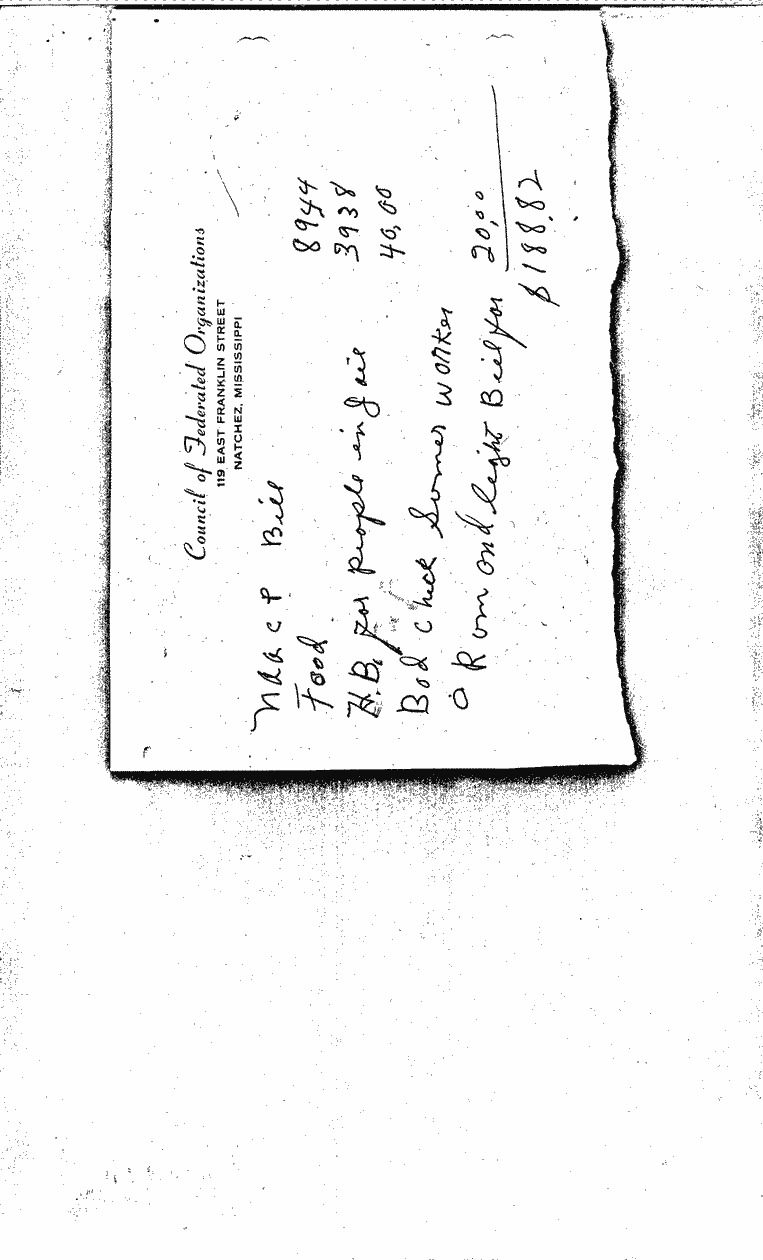 Council of Federated Organizations
119 EAST FRANKLIN STREET
NATCHEZ, MISSISSIPPI
naacp Bill
Food 8944
H.B. for people in Jail 3938
Bad check Summer worker 40,00
Room and light Bill for 20,00
$188,82